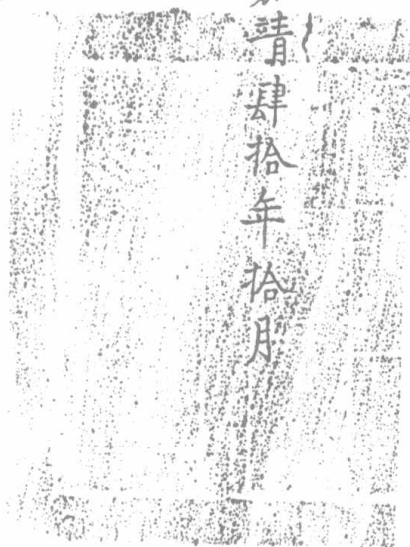 靖肆拾年拾月